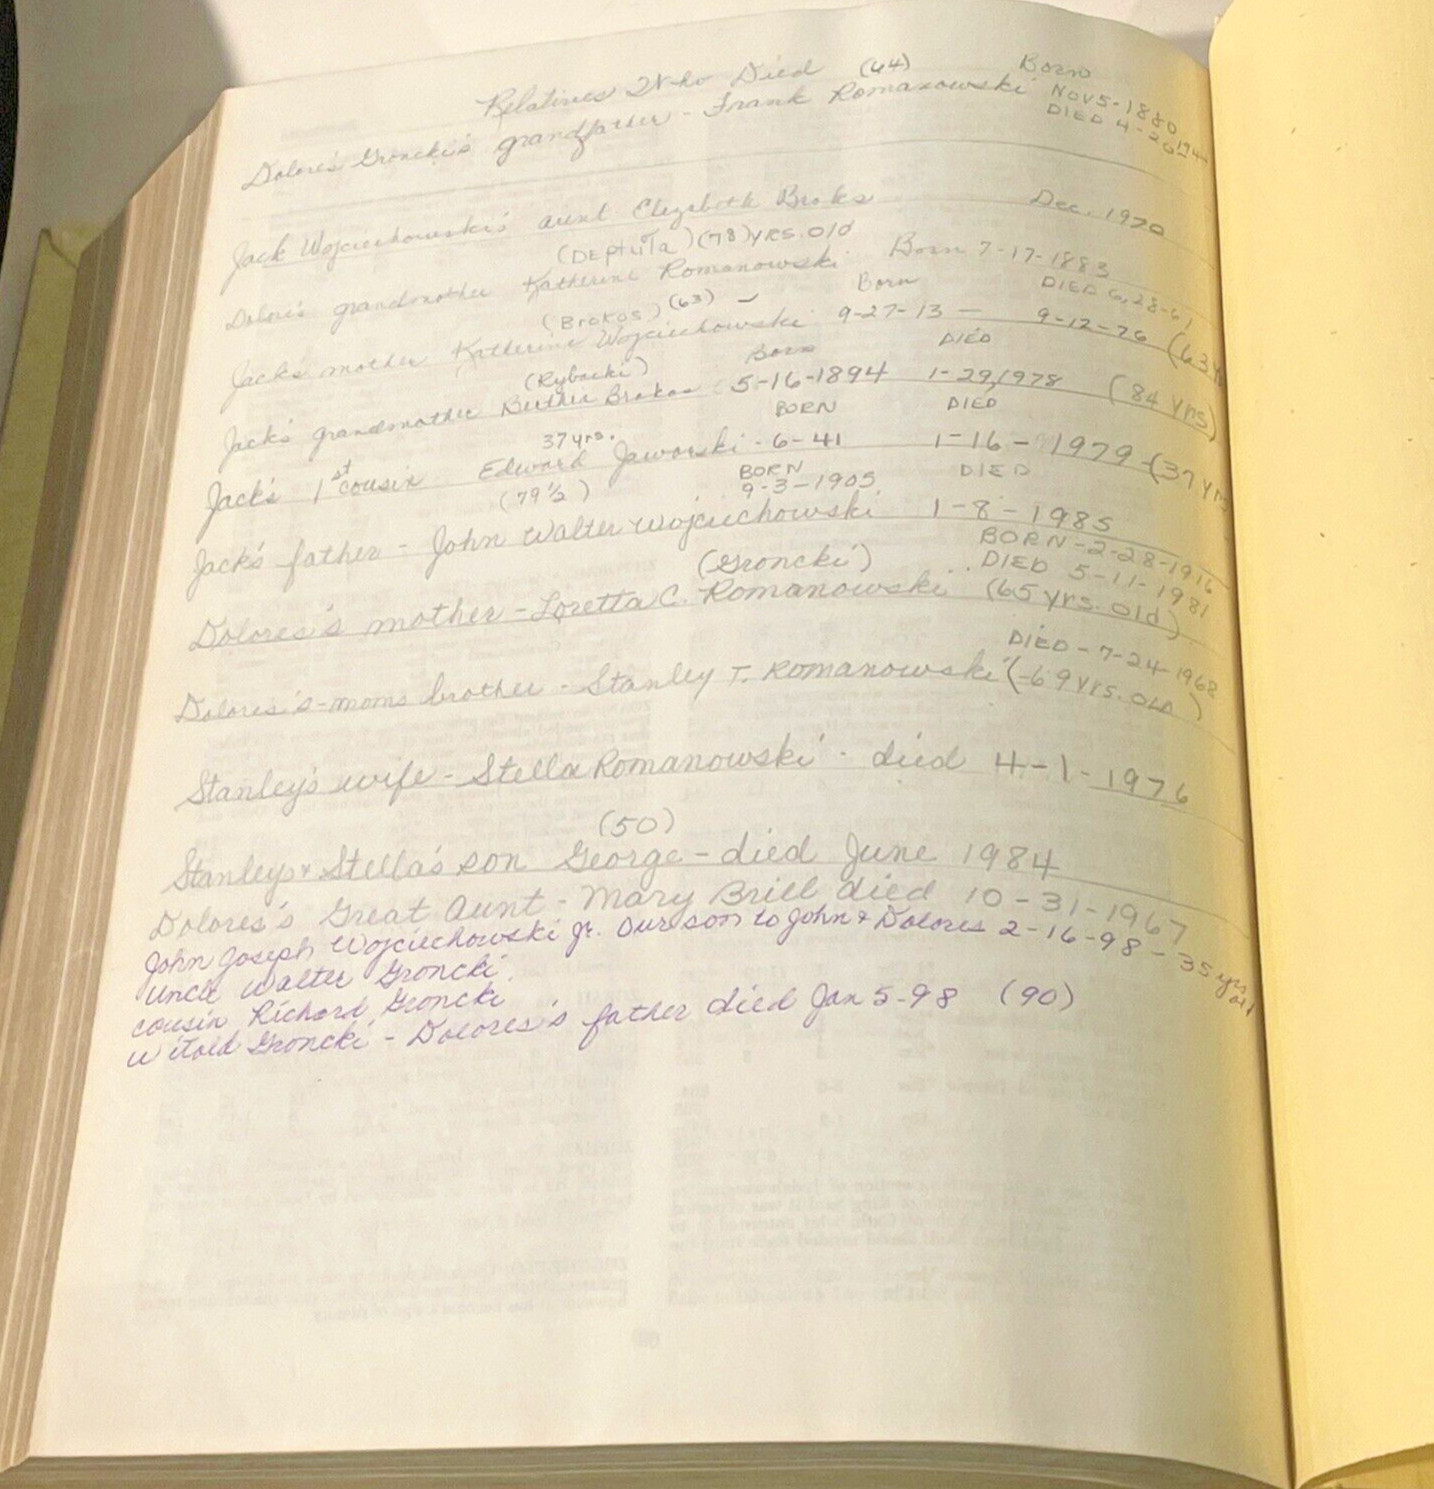 Relatives Who Died (64) Born
Dolores Groncki's grandfather - Frank Romanowski Nov 5-1880
DIED 4-26
Jack Wojciechowski's aunt Elizabeth Broks Dec. 1970
(DEptuTa) (78) YRS. Old
Dolores's grandmother Katherine Romanowski Born 7-17-1883
DIED 6,28-61
(Brokos) (63) Born
Jack's mother Katherine Wojciechowski 9-27-13 — 9-12-76 (63
(Rybacki) Born DIED
Jack's grandmother Bertha Brokos 5-16-1894 1-29,1978 (84 yrs)
37 yrs. BORN DIED
Jack's 1st cousin Edward Jaworski - 6-41 1-16-1979-(37 yrs
(79½) BORN DIED
9-3-1905
Jack's father - John Walter Wojciechowski 1-8-1985
(Groncki) BORN-2-28-1916
DIED 5-11-1981
Dolores's mother - Loretta C. Romanowski (65 yrs. old)
DIED-7-24-1968
Dolores's-moms brother - Stanley T. Romanowski (-69 yrs. OLD)
Stanley's wife - Stella Romanowski - died 4-1-1976
(50)
Stanleys & Stella's son George - died June 1984
Dolores's Great Aunt - Mary Brill died 10-31-1967
John Joseph Wojciechowski jr. Our son to John & Dolores 2-16-98-35 yrs old
uncle Walter Groncki
cousin Richard Groncki
Witold Groncki - Dolores's father died Jan 5-98 (90)